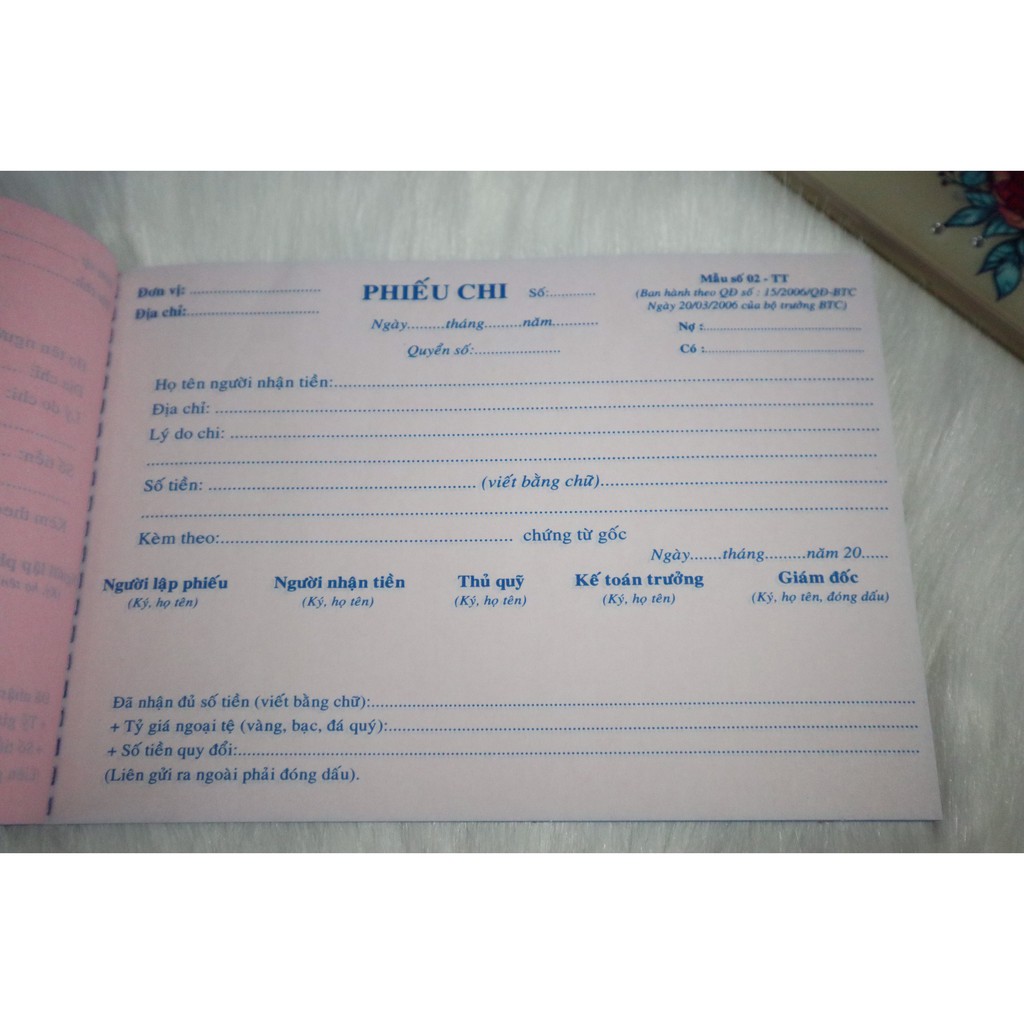 Đơn vị: ................................
PHIẾU CHI Số:............
Mẫu số 02 - TT
Địa chỉ:................................
(Ban hành theo QĐ số : 15/2006/QĐ-BTC
Ngày 20/03/2006 của bộ trưởng BTC)
Ngày.........tháng.........năm...........
Nợ :........................................
Quyển số:.....................
Có :........................................
Họ tên người nhận tiền:................................................................
Địa chỉ: ................................................................
Lý do chi: ................................................................
................................................................
Số tiền: ................................ (viết bằng chữ)................................
................................................................
Kèm theo:................................ chứng từ gốc
Ngày.......tháng.........năm 20......
Người lập phiếu Người nhận tiền Thủ quỹ Kế toán trưởng Giám đốc
(Ký, họ tên) (Ký, họ tên) (Ký, họ tên) (Ký, họ tên) (Ký, họ tên, đóng dấu)
Đã nhận đủ số tiền (viết bằng chữ):................................................................
+ Tỷ giá ngoại tệ (vàng, bạc, đá quý):................................................................
+ Số tiền quy đổi:................................................................
(Liên gửi ra ngoài phải đóng dấu).